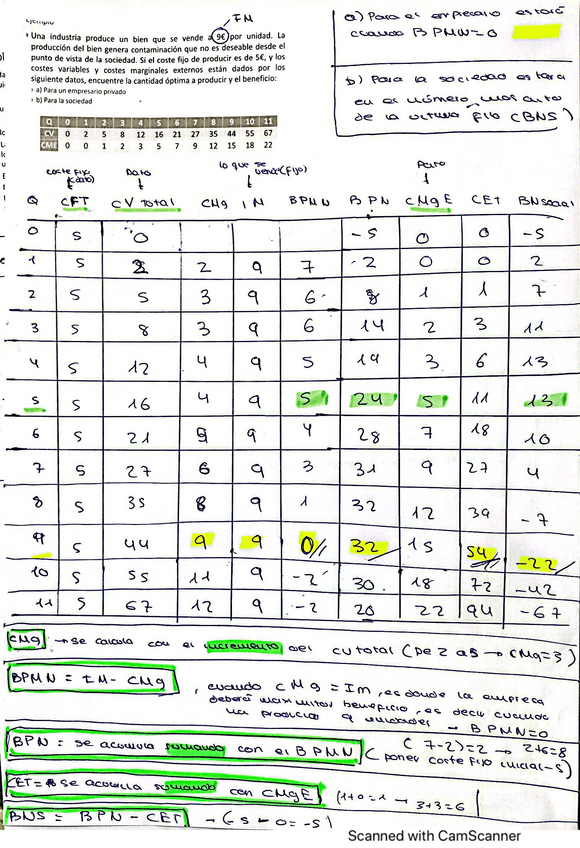 Ejemplo
= IM
Una industria produce un bien que se vende a 9€ por unidad. La
producción del bien genera contaminación que no es deseable desde el
punto de vista de la sociedad. Si el coste fijo de producir es de 5€, y los
costes variables y costes marginales externos están dados por los
siguiente datos, encuentre la cantidad óptima a producir y el beneficio:
a) Para un empresario privado
b) Para la sociedad
a) Para el empresario estará
cuando BPMN=0
b) Para la sociedad estará
en el número más alto
de la última fila (BNS)
Q 0 1 2 3 4 5 6 7 8 9 10 11
CV 0 2 5 8 12 16 21 27 35 44 55 67
CME 0 0 1 2 3 5 7 9 12 15 18 22
coste fijo (dato) Dato lo que se vende (fijo) Dato
Q CFT CV total CMg IM BPMN BPN CMgE CET BNSocial
0 5 0 -5 0 0 -5
1 5 2 2 9 7 2 0 0 2
2 5 5 3 9 6 8 1 1 7
3 5 8 3 9 6 14 2 3 11
4 5 12 4 9 5 19 3 6 13
5 5 16 4 9 5 24 5 11 13
6 5 21 5 9 4 28 7 18 10
7 5 27 6 9 3 31 9 27 4
8 5 35 8 9 1 32 12 39 -7
9 5 44 9 9 0 32 15 54 -22
10 5 55 11 9 -2 30 18 72 -42
11 5 67 12 9 -2 20 22 94 -67
CMg → se calcula con el incremento del CV total (De 2 a 5 → CMg=3)
BPMN = IM - CMg , cuando CMg = Im, es donde la empresa
deberá maximitar beneficio, es decir cuando
ha producido 9 unidades → BPMN=0
BPN = se acumula sumando con el BPMN ( 7-2)=2 → 2+6=8
(poner coste fijo inicial -5)
CET = se acumula sumando con CMgE (1+0=1 → 3+3=6
BNS = BPN - CET → (-5 - 0 = -5)
Scanned with CamScanner